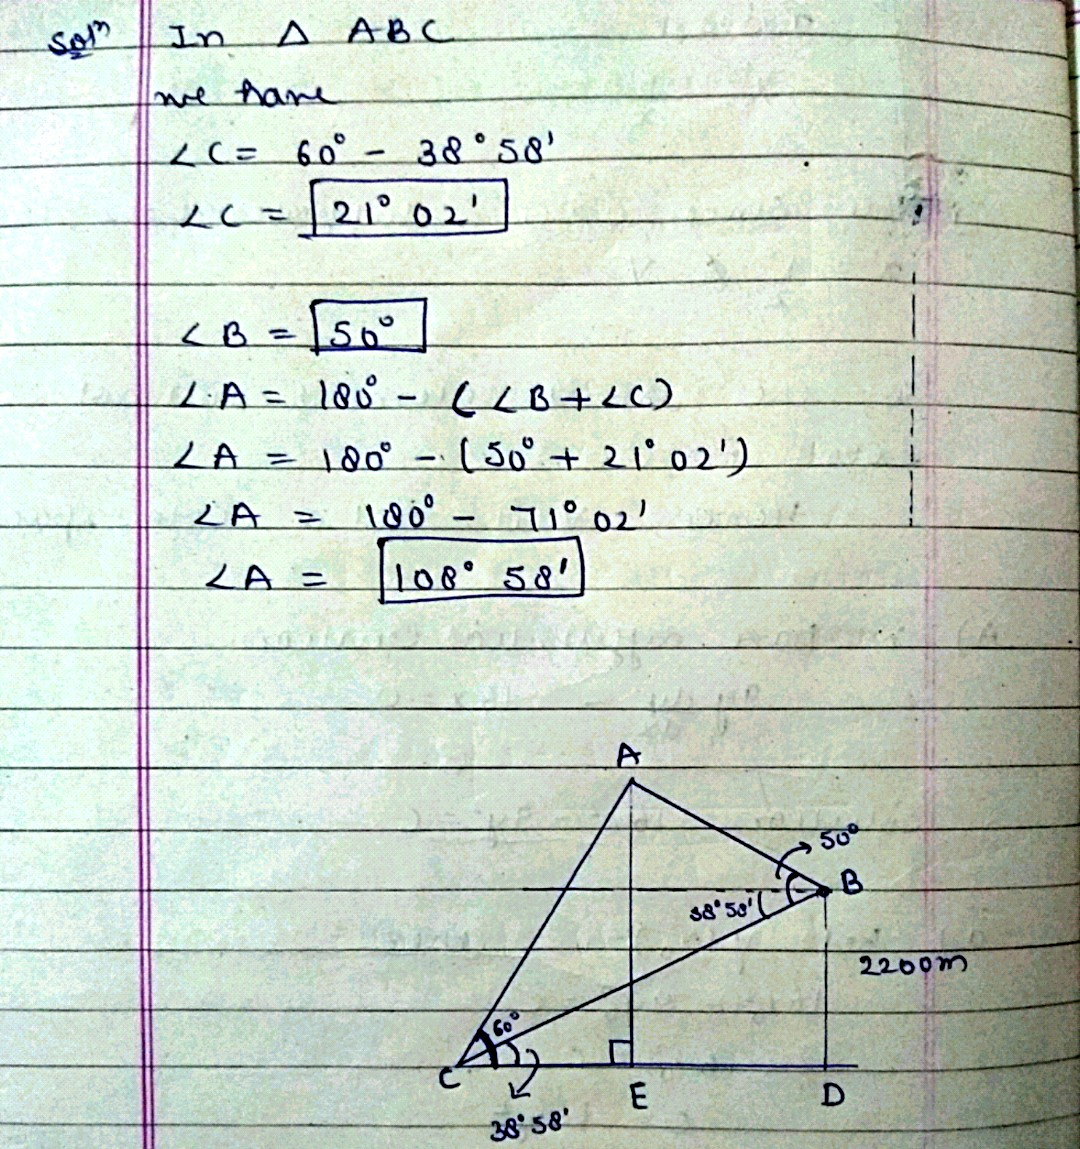 Solⁿ In Δ ABC
we have
∠C = 60° - 38°58'
∠C = 21° 02'
∠B = 50°
∠A = 180° - (∠B + ∠C)
∠A = 180° - (50° + 21° 02')
∠A = 180° - 71° 02'
∠A = 108° 58'
A
50°
B
38°58'
2200m
60°
C
E
D
38°58'